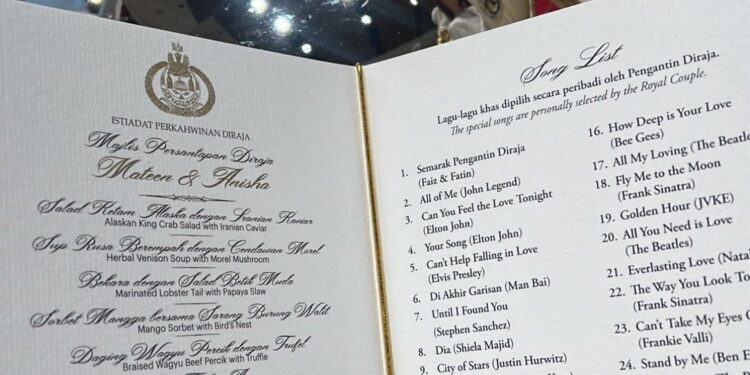 ISTIADAT PERKAHWINAN DIRAJA
Majlis Persantapan Diraja
Mateen & Anisha
Salad Ketam Alaska dengan Iranian Kaviar
Alaskan King Crab Salad with Iranian Caviar
Sup Rusa Berempah dengan Cendawan Morel
Herbal Venison Soup with Morel Mushroom
Bekara dengan Salad Betik Muda
Marinated Lobster Tail with Papaya Slaw
Sorbet Mangga bersama Sarang Burung Walit
Mango Sorbet with Bird's Nest
Daging Wagyu Percik dengan Trufel
Braised Wagyu Beef Percik with Truffle
Song List
Lagu-lagu khas dipilih secara peribadi oleh Pengantin Diraja.
The special songs are personally selected by the Royal Couple.
1. Semarak Pengantin Diraja
(Faiz & Fatin)
2. All of Me (John Legend)
3. Can You Feel the Love Tonight
(Elton John)
4. Your Song (Elton John)
5. Can't Help Falling in Love
(Elvis Presley)
6. Di Akhir Garisan (Man Bai)
7. Until I Found You
(Stephen Sanchez)
8. Dia (Shiela Majid)
9. City of Stars (Justin Hurwitz)
16. How Deep is Your Love
(Bee Gees)
17. All My Loving (The Beatle
18. Fly Me to the Moon
(Frank Sinatra)
19. Golden Hour (JVKE)
20. All You Need is Love
(The Beatles)
21. Everlasting Love (Nata
22. The Way You Look To
(Frank Sinatra)
23. Can't Take My Eyes O
(Frankie Valli)
24. Stand by Me (Ben E